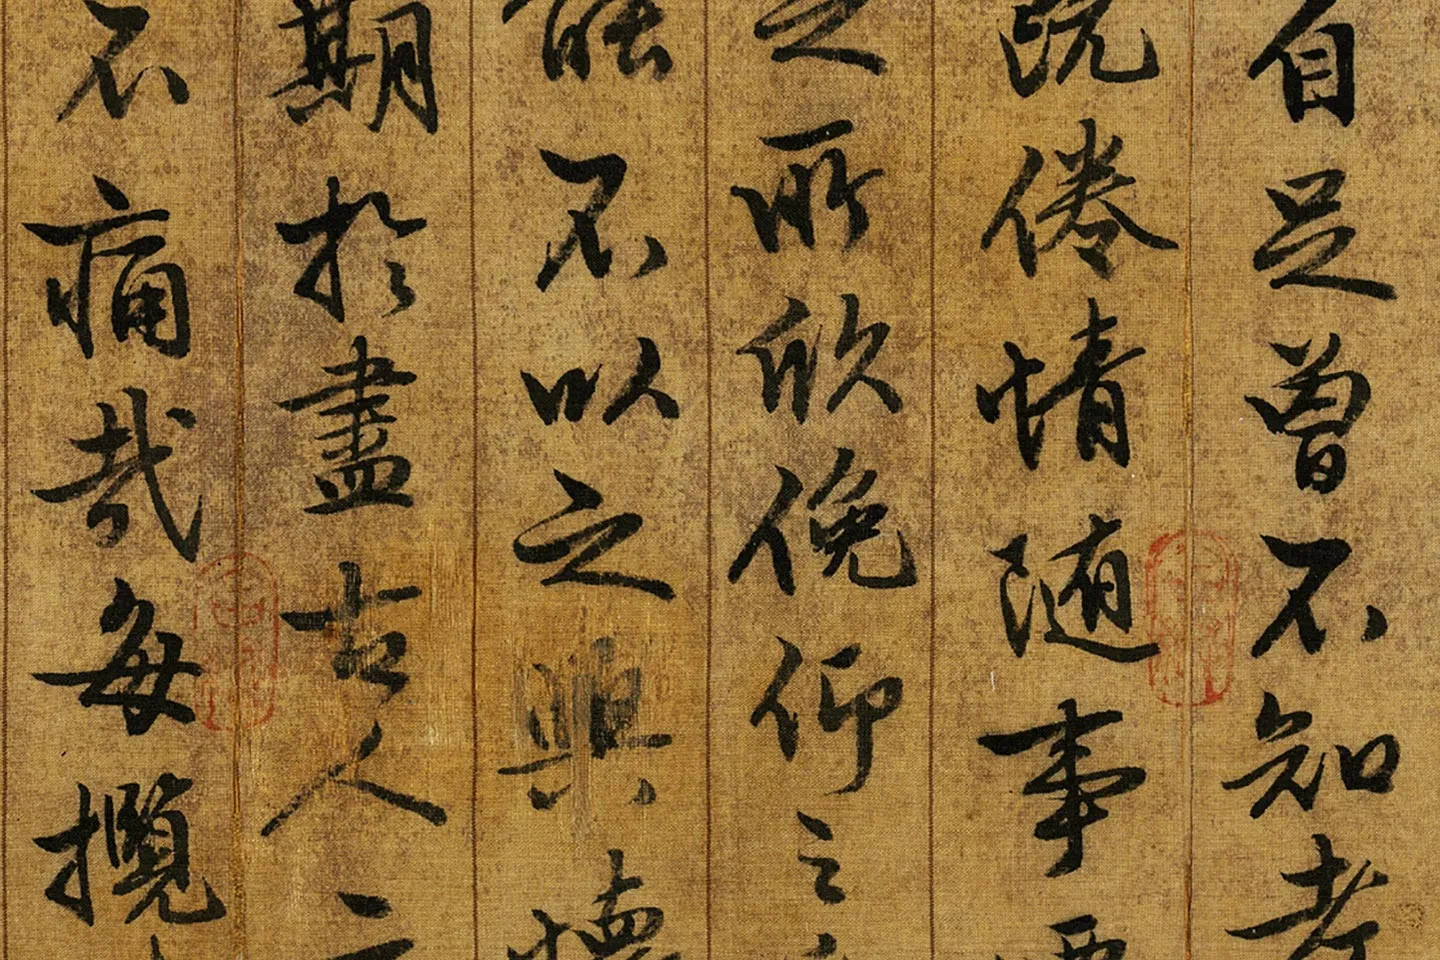 自足曾不知老
既倦情随事
之所欣俛仰之
能不以之興懷
期於盡古人云
不痛哉每攬